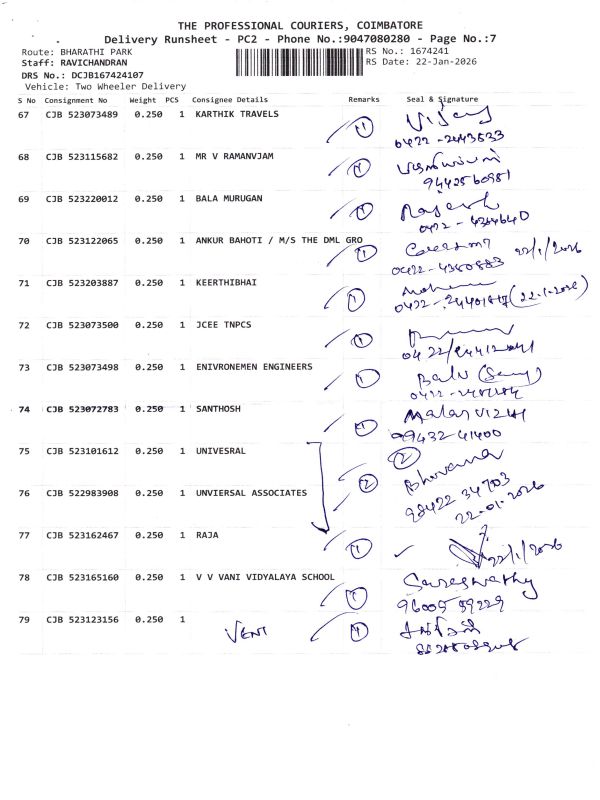 THE PROFESSIONAL COURIERS, COIMBATORE
Delivery Runsheet - PC2 - Phone No.:9047080280 - Page No.:7
Route: BHARATHI PARK
RS No.: 1674241
Staff: RAVICHANDRAN
RS Date: 22-Jan-2026
DRS No.: DCJB167424107
Vehicle: Two Wheeler Delivery
S No Consignment No Weight PCS Consignee Details Remarks Seal & Signature
67 CJB 523073489 0.250 1 KARTHIK TRAVELS 1 Vijay
0422-2443533
68 CJB 523115682 0.250 1 MR V RAMANVJAM 1
9442560981
69 CJB 523220012 0.250 1 BALA MURUGAN 1 Rajesh
0422-4344640
70 CJB 523122065 0.250 1 ANKUR BAHOTI / M/S THE DML GRO 1 22/1/2026
0422-4380883
71 CJB 523203887 0.250 1 KEERTHIBHAI 1
(22.1.2026)
72 CJB 523073500 0.250 1 JCEE TNPCS 1
73 CJB 523073498 0.250 1 ENIVRONEMEN ENGINEERS 1 Balu
74 CJB 523072783 0.250 1 SANTHOSH 1 Malar vizhi
99432-41400
75 CJB 523101612 0.250 1 UNIVESRAL 2 Bhuvana
76 CJB 522983908 0.250 1 UNVIERSAL ASSOCIATES 2 98422 34703
22-01-2026
77 CJB 523162467 0.250 1 RAJA 1 22/1/2026
78 CJB 523165160 0.250 1 V V VANI VIDYALAYA SCHOOL 1 Sareswathy
96005 59229
79 CJB 523123156 0.250 1 VENI 1